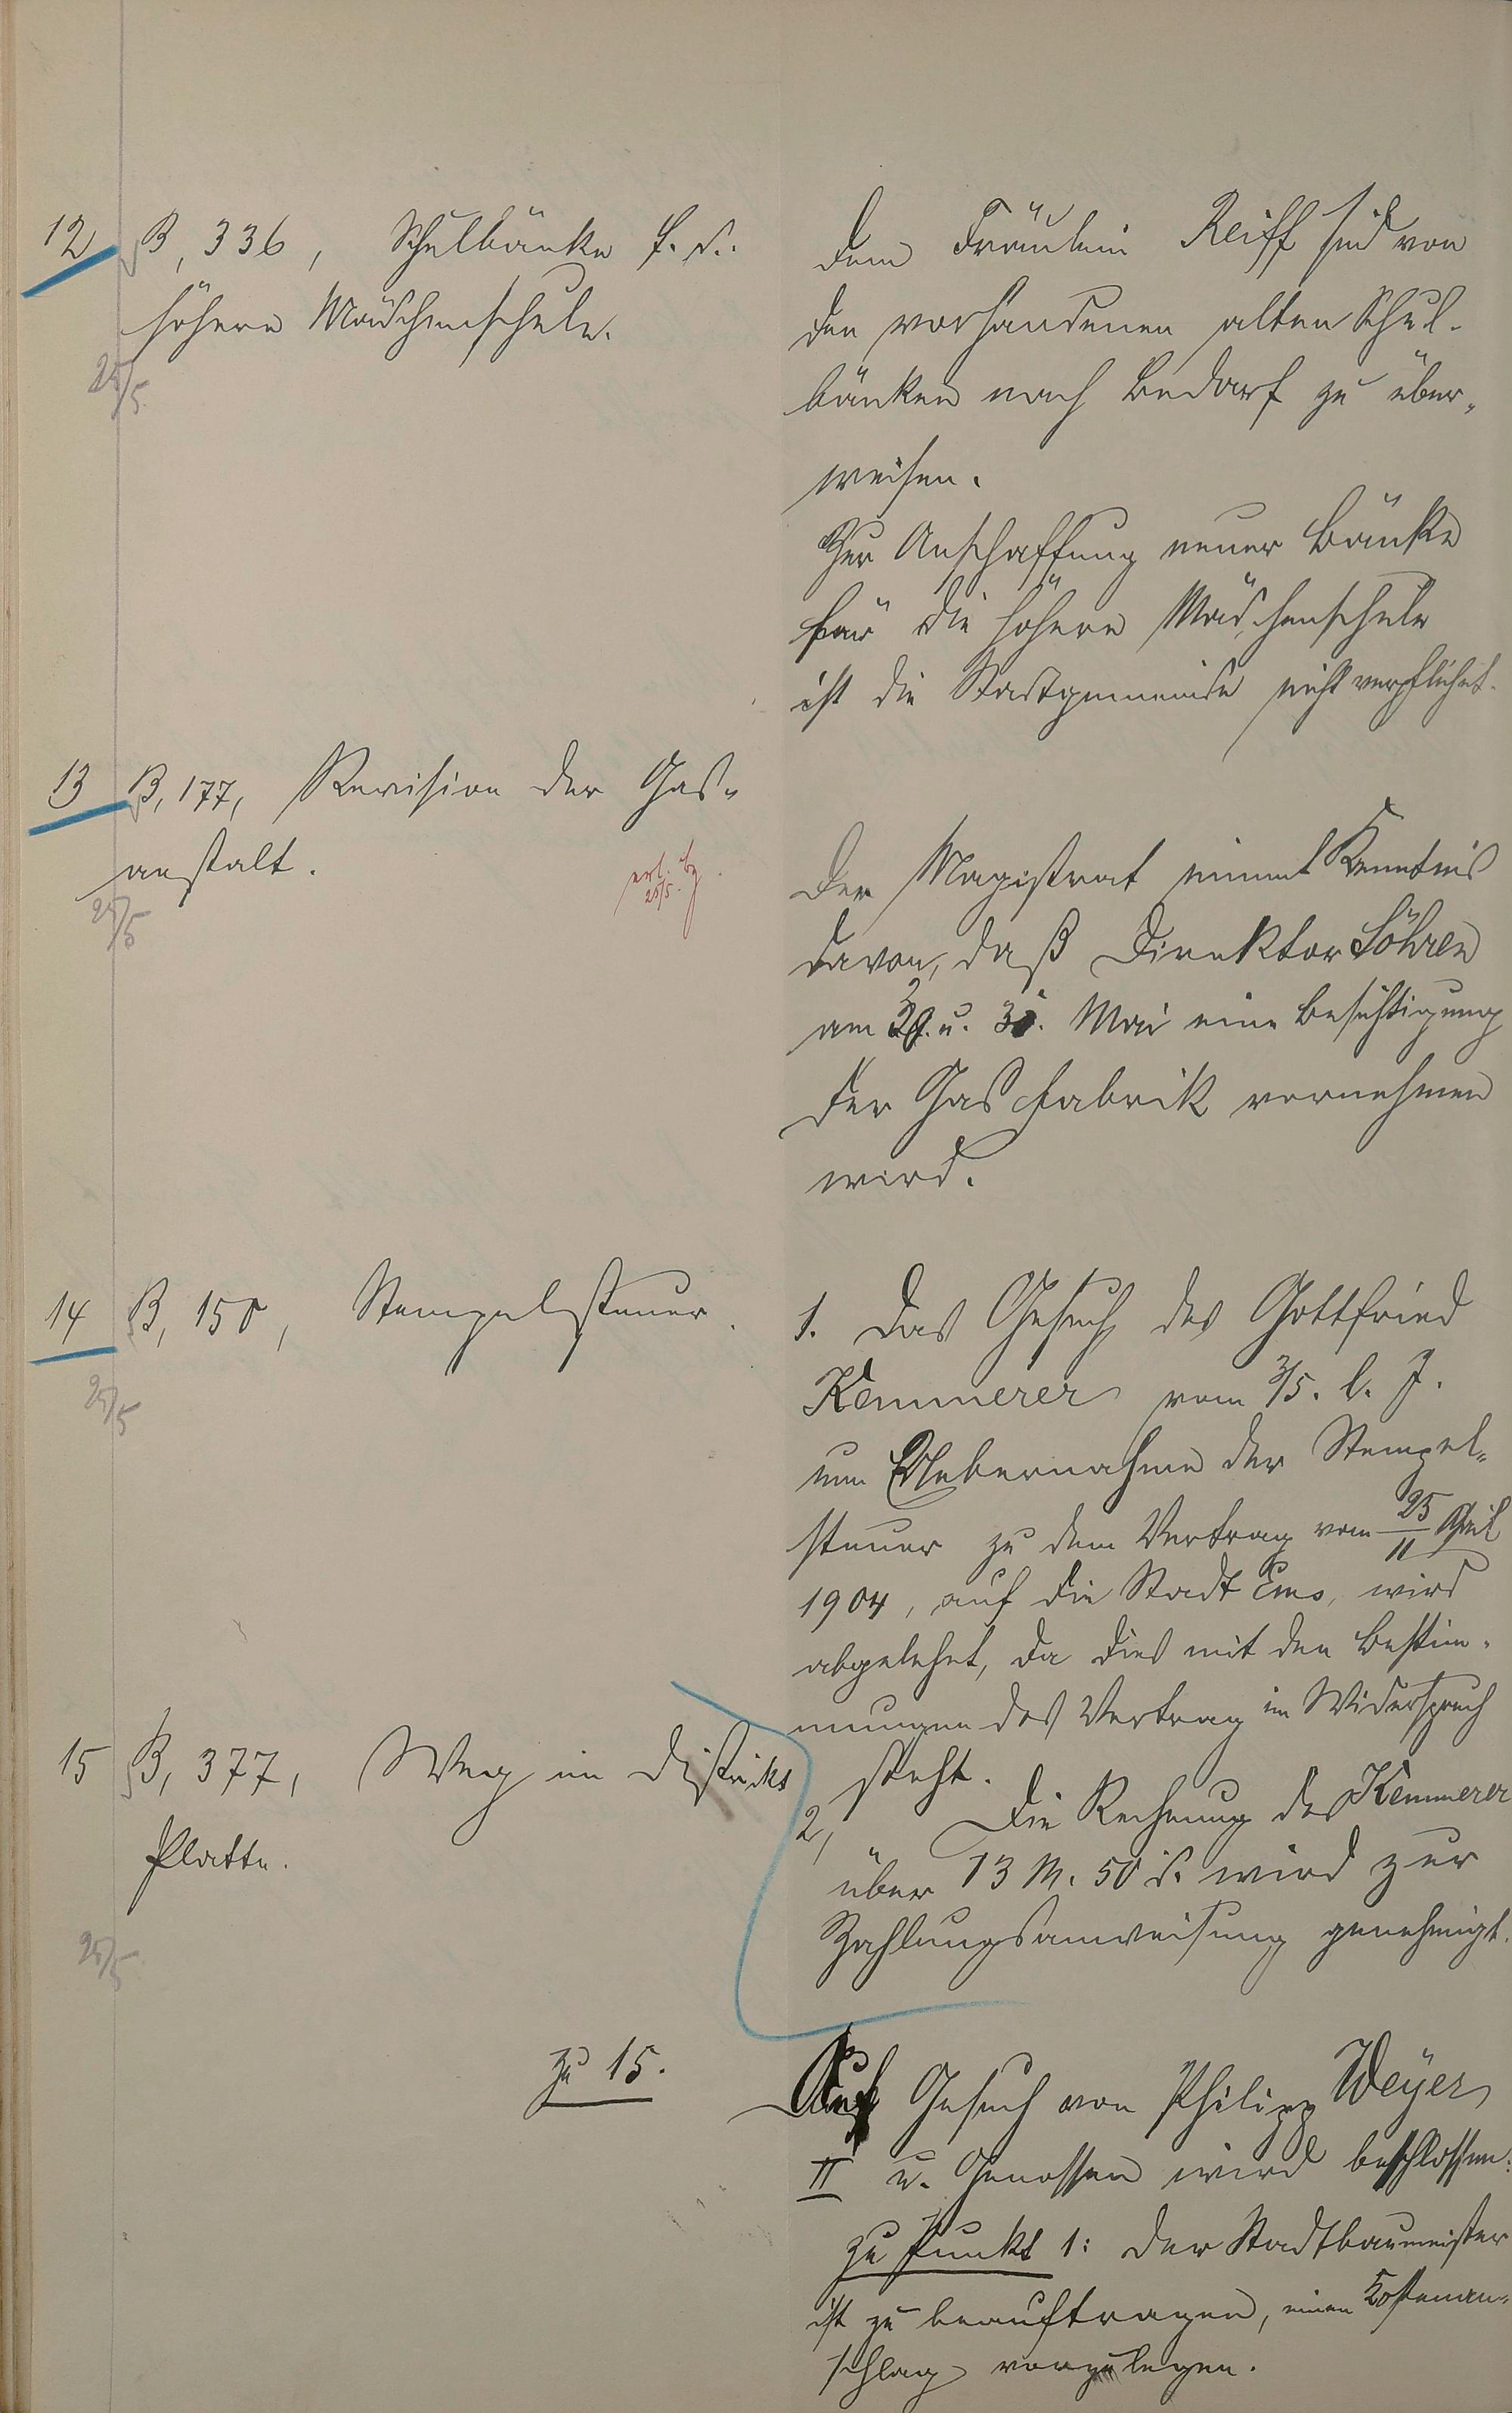 12 B, 336, Schulbänke f. d.
höhere Mädchenschule.
25/5
Dem Fräulein Reiff sind von
den vorhandenen alten Schul-
bänken nach Bedarf zu über-
weisen.
Zur Anschaffung neuer Bänke
für die höhere Mädchenschule
ist die Stadtgemeinde nicht verpflichtet.
13 B, 177, Revision der Gas-
anstalt.
25/5
erl.
25/5.
Der Magistrat nimmt Kenntnis
davon, daß Direktor Söhren
am u. Mai eine Besichtigung
der Gasfabrik vornehmen
wird.
14 B, 150, Stempelsteuer.
25/5
1. Das Gesuch des Gottfried
Kemmerer vom 3/5. l. J.
um Uebernahme der Stempel-
steuer zu dem Vertrag vom 25/11 April
1904, auf die Stadt Ems, wird
abgelehnt, da dies mit den Bestim-
mungen des Vertrag im Widerspruch
steht.
2, Die Rechnung des Kemmerer
über 13 M. 50 d. wird zur
Zahlungsanweisung genehmigt.
15 B, 377, Weg im Distrikt
Platte.
25/5
zu 15.
Auf Gesuch von Philipp Weyer
II u. Genossen wird beschlossen:
zu Punkt 1: Der Stadtbaumeister
ist zu beauftragen, einen Kostenan-
schlag vorzulegen.